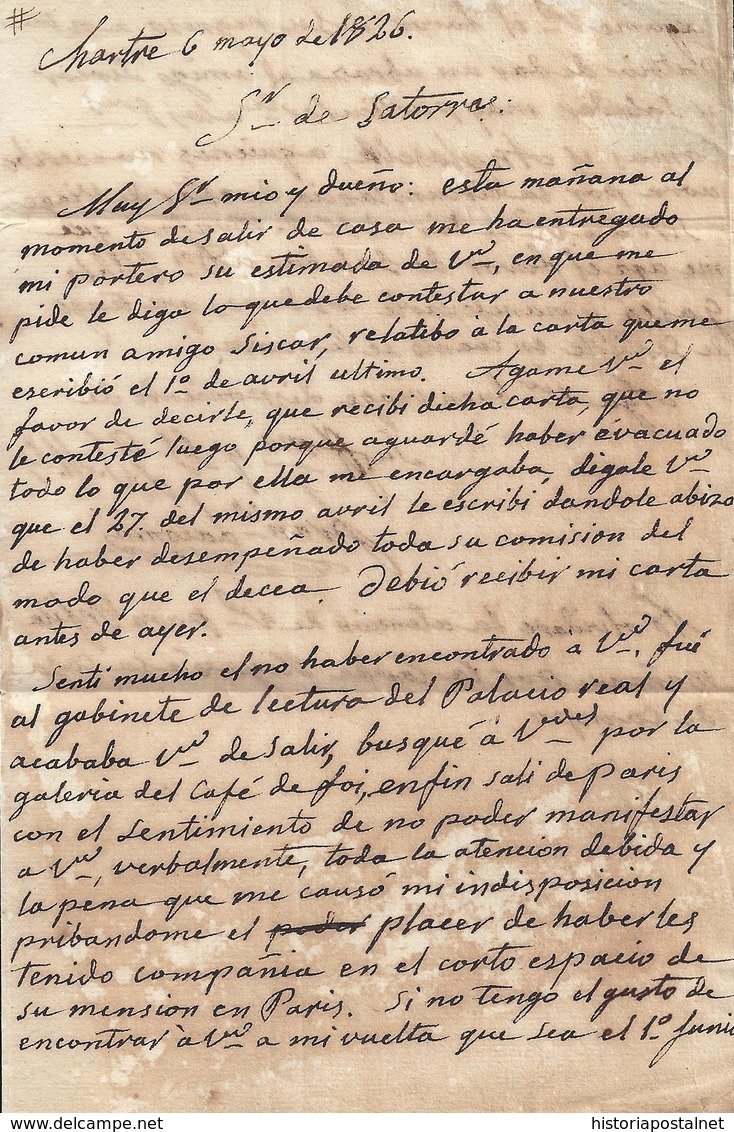 #
Chartre 6 mayo de 1826.
Sr de Satorras:
Muy Sr mio y dueño: esta mañana al
momento de salir de casa me ha entregado
mi portero su estimada de Vm, en que me
pide le diga lo que debe contestar a nuestro
comun amigo Siscar, relatibo à la carta que me
escribió el 1º de avril ultimo. Agame Vm el
favor de decirle, que recibi dicha carta, que no
le contesté luego porque aguardé haber evacuado
todo lo que por ella me encargaba, digale Vm
que el 27. del mismo avril le escribi dandole abizo
de haber desempeñado toda su comision del
modo que el decea. Debió recibir mi carta
antes de ayer.
Senti mucho el no haber encontrado à Vmd, fué
al gabinete de lectura del Palacio real y
acababa Vmd de salir, busqué à Vmdes por la
galeria del Café de foi, enfin sali de Paris
con el sentimiento de no poder manifestar
a Vmd, verbalmente, toda la atencion debida y
la pena que me causó mi indisposicion
pribandome el poder placer de haberles
tenido compañia en el corto espacio de
su mension en Paris. Si no tengo el gusto de
encontrar à Vmd a mi vuelta que sea el 1º Junio
historiapostalnet
www.delcampe.net